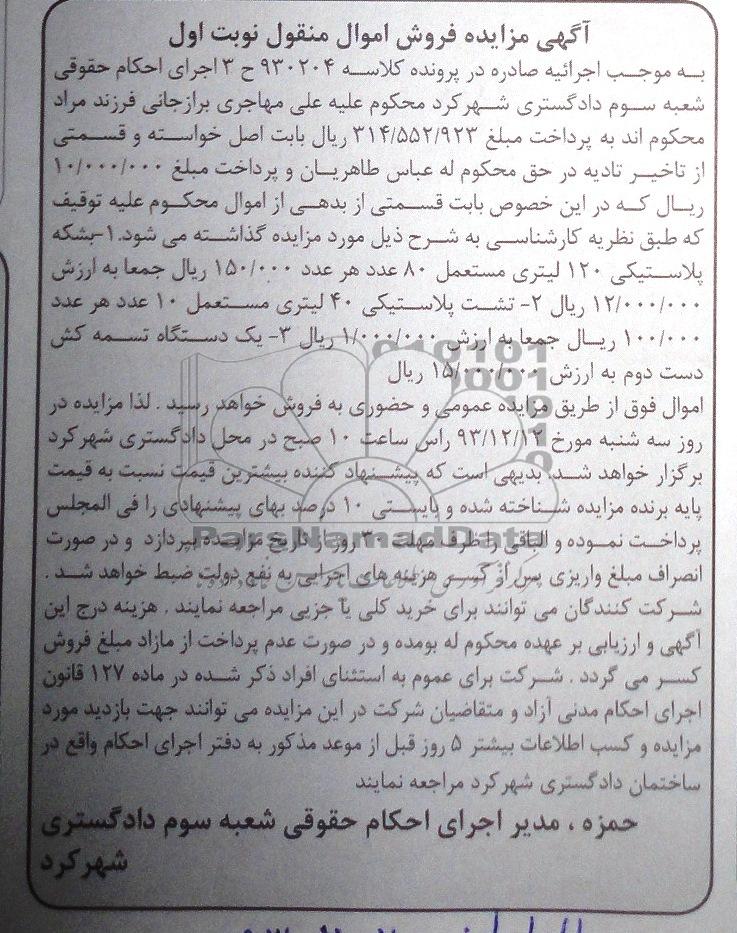 آگهی مزایده فروش اموال منقول نوبت اول
به موجب اجرائیه صادره در پرونده کلاسه ۹۳۰۲۰۴ ح ۳ اجرای احکام حقوقی
شعبه سوم دادگستری شهرکرد محکوم علیه علی مهاجری برازجانی فرزند مراد
محکوم اند به پرداخت مبلغ ۳۱۴/۵۵۲/۹۲۳ ریال بابت اصل خواسته و قسمتی
از تاخیر تادیه در حق محکوم له عباس طاهریان و پرداخت مبلغ ۱۰/۰۰۰/۰۰۰
ریال که در این خصوص بابت قسمتی از بدهی از اموال محکوم علیه توقیف
که طبق نظریه کارشناسی به شرح ذیل مورد مزایده گذاشته می شود.۱-بشکه
پلاستیکی ۱۲۰ لیتری مستعمل ۸۰ عدد هر عدد ۱۵۰/۰۰۰ ریال جمعا به ارزش
۱۲/۰۰۰/۰۰۰ ریال ۲- تشت پلاستیکی ۴۰ لیتری مستعمل ۱۰ عدد هر عدد
۱۰۰/۰۰۰ ریال جمعا به ارزش ۱/۰۰۰/۰۰۰ ریال ۳- یک دستگاه تسمه کش
دست دوم به ارزش ۱۵/۰۰۰/۰۰۰ ریال
اموال فوق از طریق مزایده عمومی و حضوری به فروش خواهد رسید . لذا مزایده در
روز سه شنبه مورخ ۹۳/۱۲/۱۲ راس ساعت ۱۰ صبح در محل دادگستری شهرکرد
برگزار خواهد شد. بدیهی است که پیشنهاد کننده بیشترین قیمت نسبت به قیمت
پایه برنده مزایده شناخته شده و بایستی ۱۰ درصد بهای پیشنهادی را فی المجلس
پرداخت نموده و الباقی را ظرف مهلت ۳۰ روز از تاریخ مزایده بپردازد و در صورت
انصراف مبلغ واریزی پس از کسر هزینه های اجرایی به نفع دولت ضبط خواهد شد .
شرکت کنندگان می توانند برای خرید کلی یا جزیی مراجعه نمایند . هزینه درج این
آگهی و ارزیابی بر عهده محکوم له بومده و در صورت عدم پرداخت از مازاد مبلغ فروش
کسر می گردد . شرکت برای عموم به استثنای افراد ذکر شده در ماده ۱۲۷ قانون
اجرای احکام مدنی آزاد و متقاضیان شرکت در این مزایده می توانند جهت بازدید مورد
مزایده و کسب اطلاعات بیشتر ۵ روز قبل از موعد مذکور به دفتر اجرای احکام واقع در
ساختمان دادگستری شهرکرد مراجعه نمایند
حمزه ، مدیر اجرای احکام حقوقی شعبه سوم دادگستری
شهرکرد
ParsNamadData